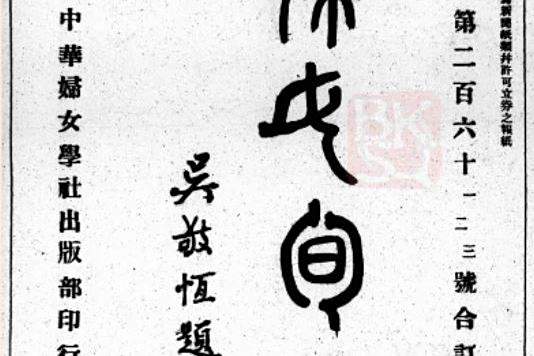 新聞紙類並許可立券之報紙
第二百六十一二三號合訂
女旬
吳敬恆題
中華婦女學社出版部印行